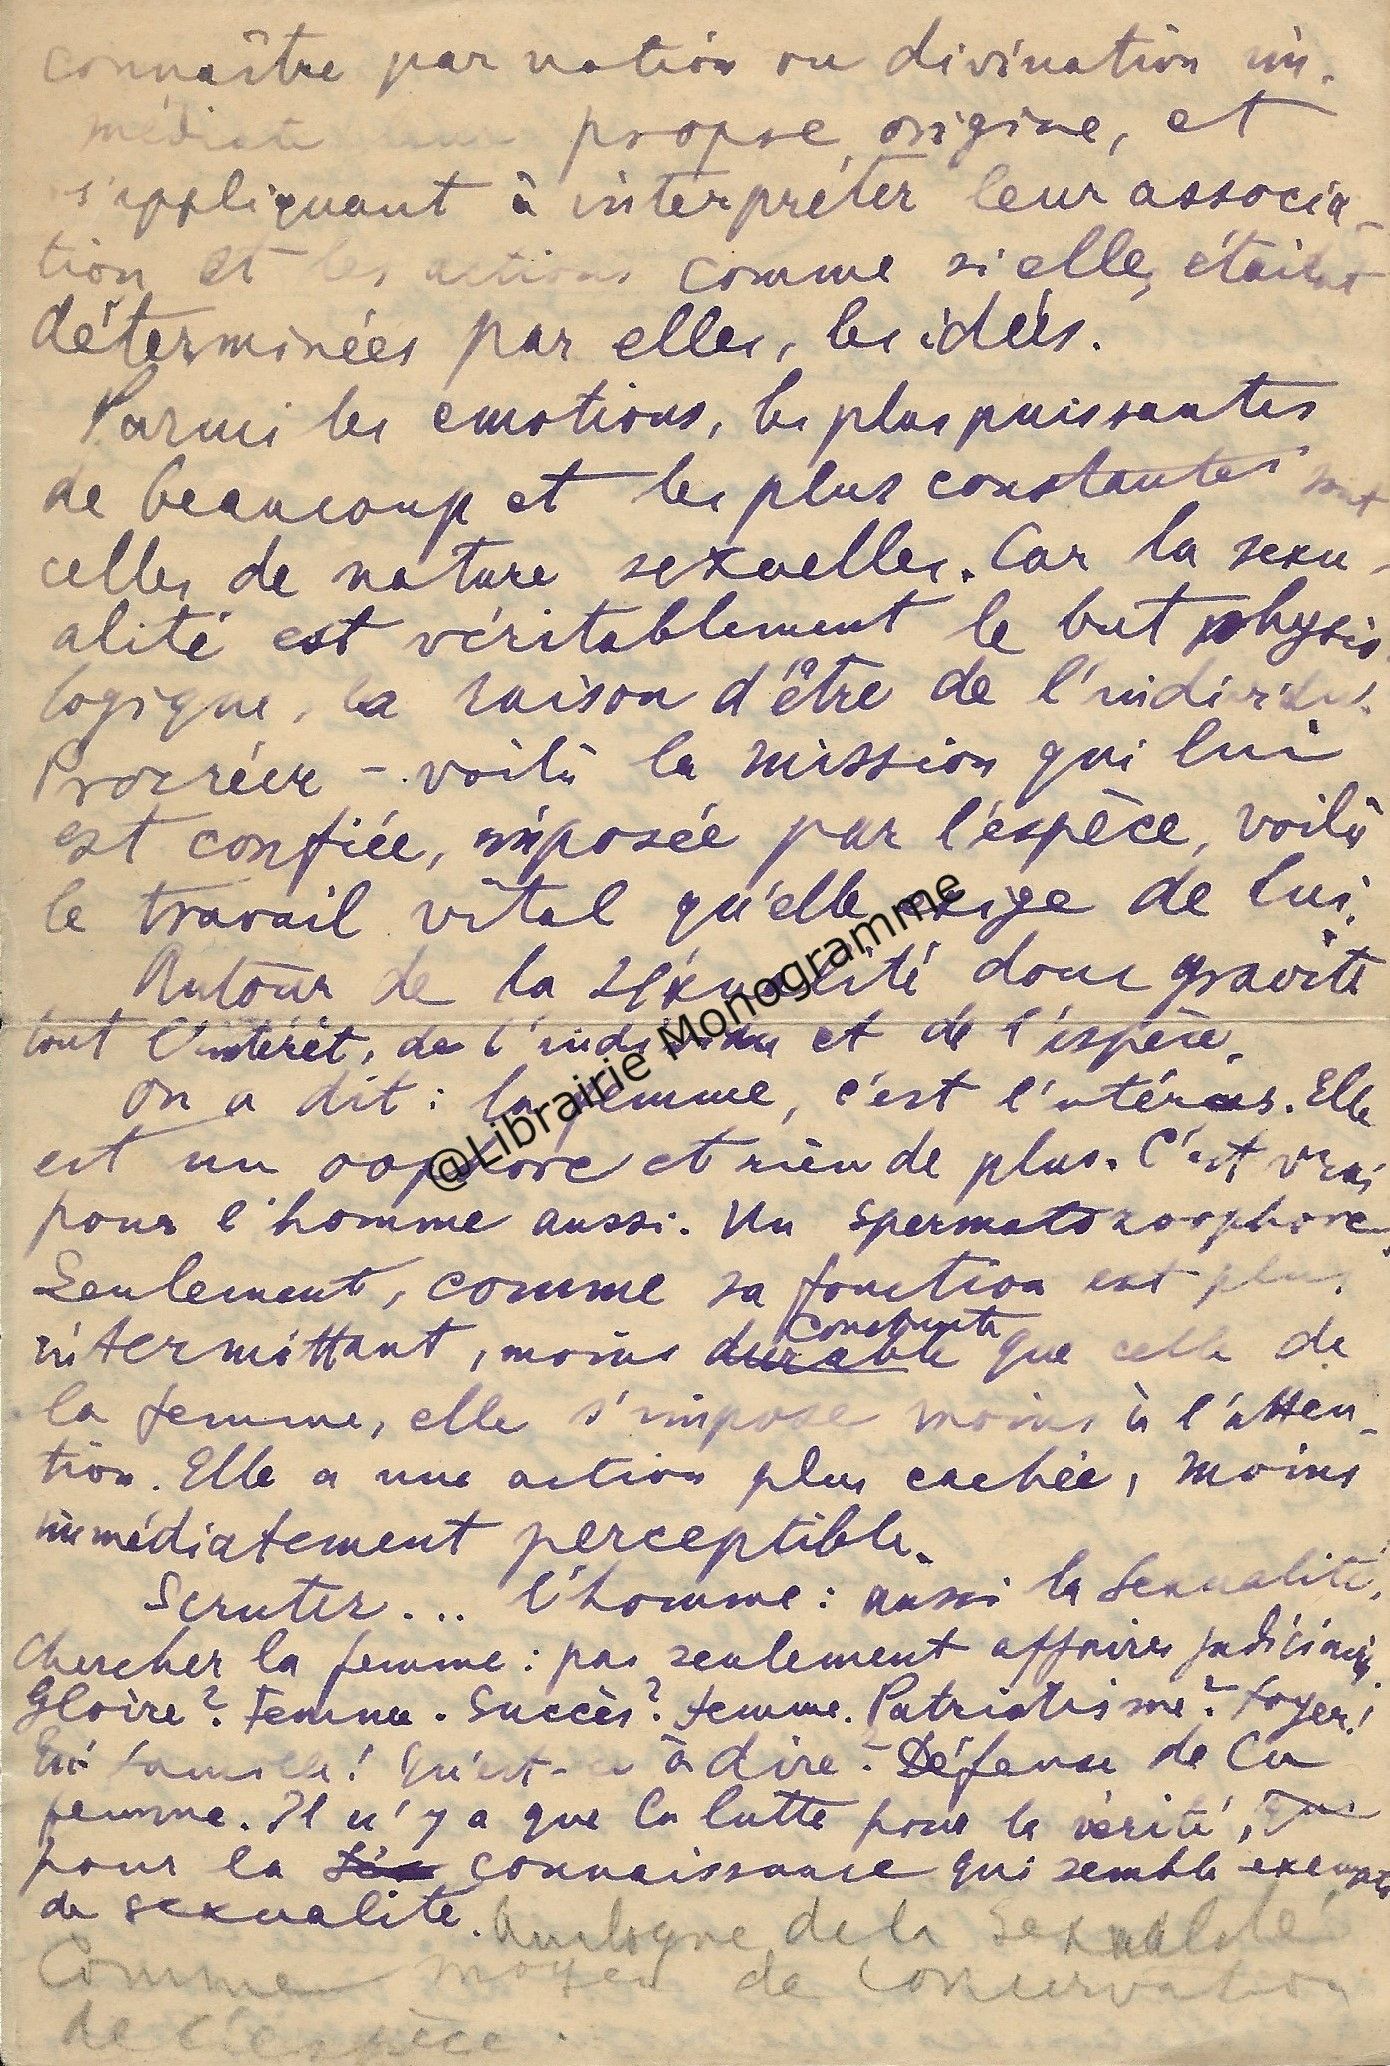 connaître par notion ou divination im-
médiate leur propre origine, et
s'appliquant à interpréter leur associa-
tion et les actions comme si elles étaient
déterminées par elles, les idées.
Parmi les émotions, les plus puissantes
de beaucoup et les plus constantes sont
celles de nature sexuelles. Car la sexu-
alité est véritablement le but physio-
logique, la raison d'être de l'individu.
Procréer - voilà la mission qui lui
est confiée, imposée par l'espèce, voilà
le travail vital qu'elle exige de lui.
Autour de la sexualité donc gravite
tout l'intérêt, de l'individu et de l'espèce.
On a dit : la femme, c'est l'utérus. Elle
est un oophore et rien de plus. C'est vrai
pour l'homme aussi. Un spermatozoophore.
Seulement, comme sa fonction est plus
intermittant, moins durable constante que celle de
la femme, elle s'impose moins à l'atten-
tion. Elle a une action plus cachée, moins
immédiatement perceptible.
Scruter... l'homme : aussi la sexualité.
Chercher la femme : pas seulement affaires judiciaires.
Gloire? Femme. Succès? femme. Patriotisme? foyer!
famille! Qu'est-ce à dire? Défense de la
femme. Il n'y a que la lutte pour la vérité,
pour la connaissance qui semble exempte
de sexualité. Analogue de la sexualité
Comme moyen de conservation
de l'espèce.
@Librairie Monogramme